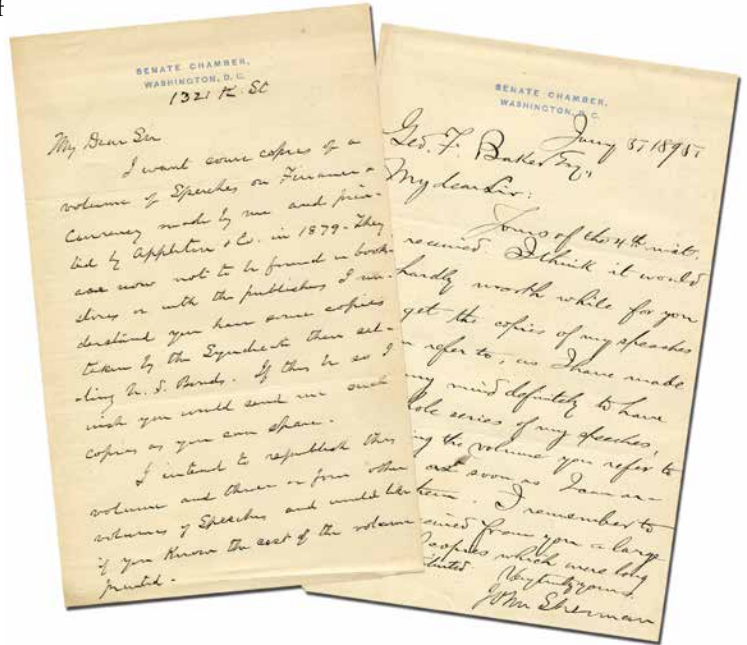 SENATE CHAMBER,
WASHINGTON, D. C.
1321 K. St
My Dear Sir
I want some copies of a
volume of Speeches on Finance &
Currency made by me and prin-
ted by Appleton & Co. in 1879 - They
are now not to be found in book
stores or with the publishers I un-
derstand you have some copies
taken by the Syndicate then sel-
-ling U. S. Bonds. If this be so I
wish you would send me such
copies as you can spare.
I intend to republish this
volume and three or four other
volumes of Speeches and would like
if you Know the cost of the volume
printed -
SENATE CHAMBER,
WASHINGTON, D. C.
Jany 5, 1895
Geo. F. Baker Esq.,
My dear Sir:
Yours of the 4th inst.
received. I think it would
hardly worth while for you
get the copies of my speeches
refer to, as I have made
my mind definitely to have
series of my speeches,
the volume you refer to
as soon as I can
them. I remember to
from you a large
copies which were long
Very truly yours,
John Sherman